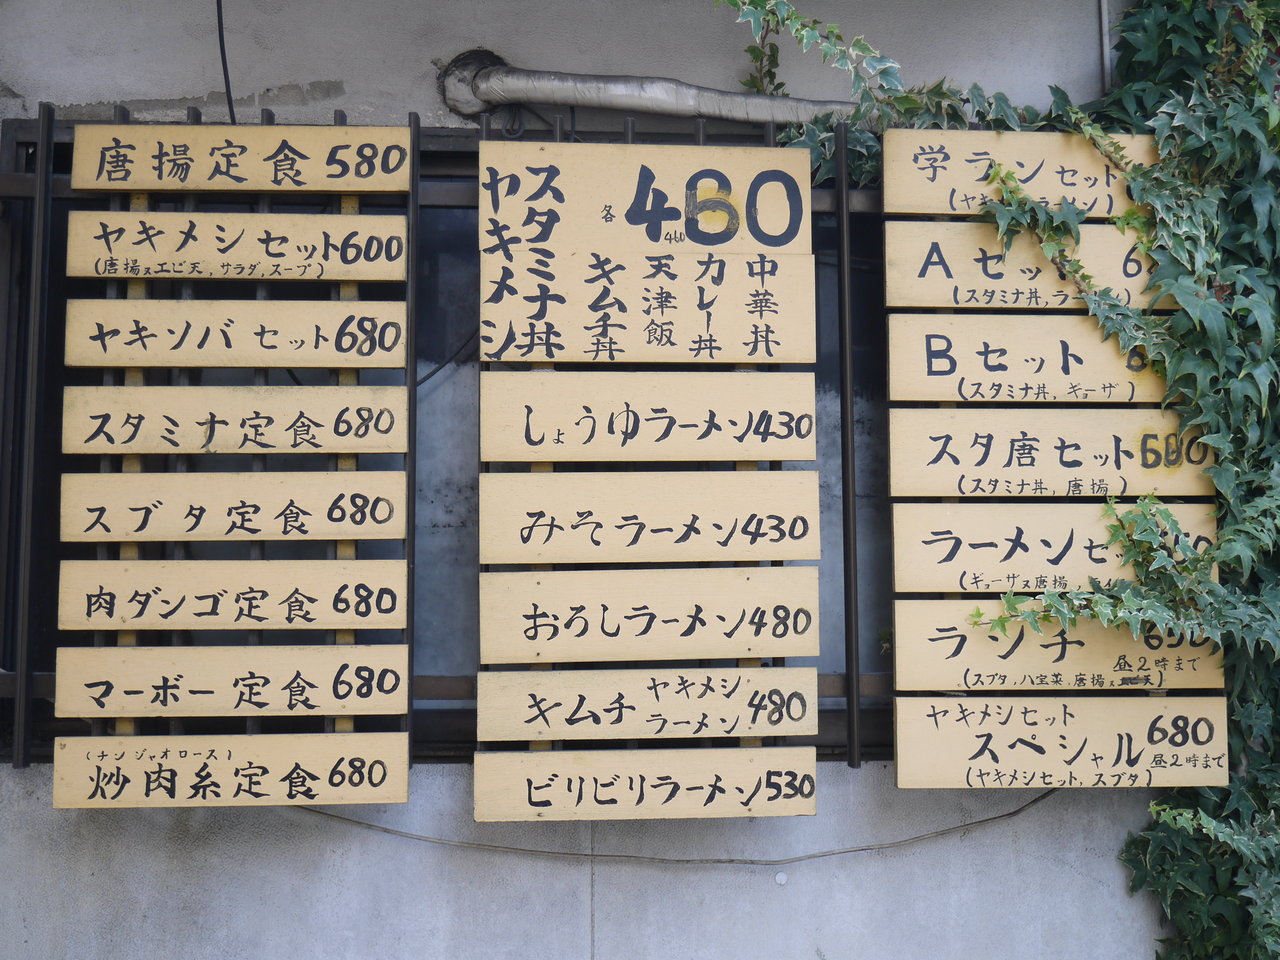 唐揚定食 580
ヤキメシセット 600
(唐揚ヌエビ天,サラダ,スープ)
ヤキソバセット 680
スタミナ定食 680
スブタ定食 680
肉ダンゴ定食 680
マーボー定食 680
(チンジャオロース)
炒肉糸定食 680
ヤキメシ
スタミナ丼
各 460
460
キムチ丼
天津飯
カレー丼
中華丼
しょうゆラーメン 430
みそラーメン 430
おろしラーメン 480
キムチ
ヤキメシ
ラーメン
480
ビリビリラーメン 530
学ランセット
(ヤキメシ,ラーメン)
Aセット 6
(スタミナ丼,ラーメン)
Bセット 6
(スタミナ丼,ギョーザ)
スタ唐セット 680
(スタミナ丼,唐揚)
ラーメンセット
(ギョーザヌ唐揚,
ランチ 650
昼2時まで
(スブタ,八宝菜,唐揚ヌ 天)
ヤキメシセット
スペシャル 680
昼2時まで
(ヤキメシセット,スブタ)